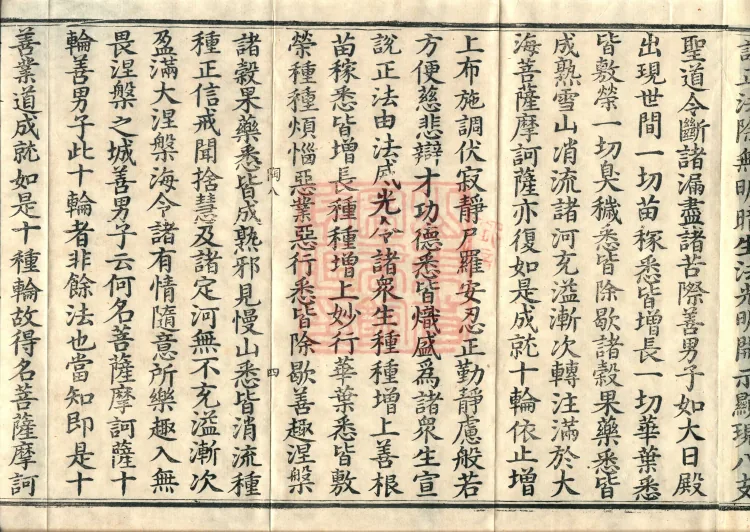 正法除無明暗生法光明開示顯現八支
聖道令斷諸漏盡諸苦際善男子如大日殿
出現世間一切苗稼悉皆增長一切華葉悉
皆敷榮一切臭穢悉皆除歇諸穀果藥悉皆
成熟雪山消流諸河充溢漸次轉注滿於大
海菩薩摩訶薩亦復如是成就十輪依止增
上布施調伏寂靜尸羅安忍正勤靜慮般若
方便慈悲辯才功德悉皆熾盛爲諸衆生宣
說正法由法威光令諸衆生種種增上善根
苗稼悉皆增長種種增上妙行華葉悉皆敷
榮種種煩惱惡業惡行悉皆除歇善趣涅槃
陶八 四
諸穀果藥悉皆成熟邪見慢山悉皆消流種
種正信戒聞捨慧及諸定河無不充溢漸次
盈滿大涅槃海令諸有情隨意所樂趣入無
畏涅槃之城善男子云何名菩薩摩訶薩十
輪善男子此十輪者非餘法也當知即是十
善業道成就如是十種輪故得名菩薩摩訶